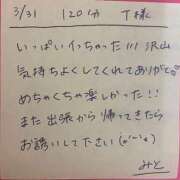 3/31 120分 T様
いっぱいイっちゃった!!! 沢山
気持ちよくしてくれてありがと。
めちゃくちゃ楽しかった!!
また出張から帰ってきたら
お誘いして下さい(o'ー'o)
みと